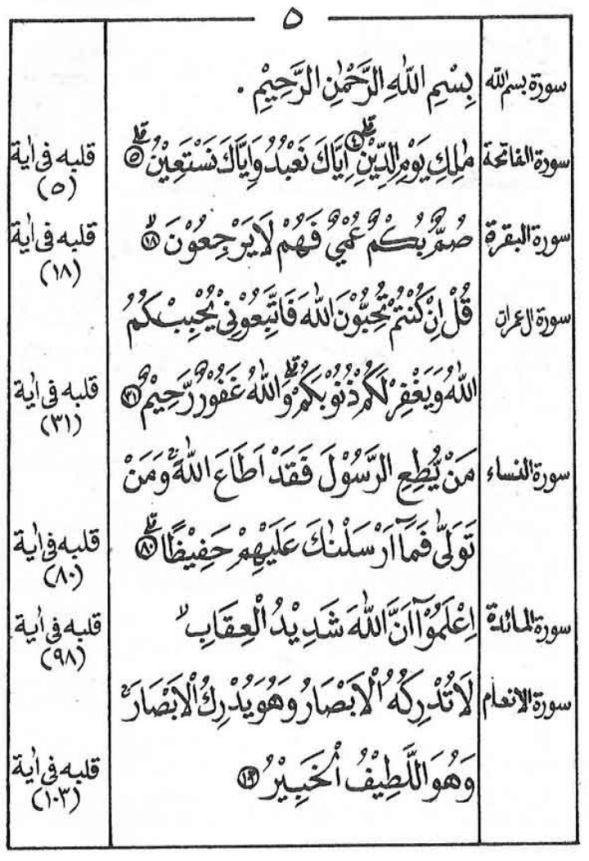 ٥
سورة بسم الله بِسْمِ اللهِ الرَّحْمٰنِ الرَّحِيْمِ .
سورة الفاتحة مٰلِكِ يَوْمِ الدِّيْنِ ﴿٤﴾ اِيَّاكَ نَعْبُدُ وَاِيَّاكَ نَسْتَعِيْنُ ﴿٥﴾ قلبه فى أية (٥)
سورة البقرة صُمٌّ بُكْمٌ عُمْيٌ فَهُمْ لَا يَرْجِعُوْنَ ﴿١٨﴾ قلبه فى أية (١٨)
سورة ال عمران قُلْ اِنْ كُنْتُمْ تُحِبُّوْنَ اللهَ فَاتَّبِعُوْنِيْ يُحْبِبْكُمُ
اللهُ وَيَغْفِرْ لَكُمْ ذُنُوْبَكُمْ وَاللهُ غَفُوْرٌ رَّحِيْمٌ ﴿٣١﴾ قلبه فى أية (٣١)
سورة النساء مَنْ يُّطِعِ الرَّسُوْلَ فَقَدْ اَطَاعَ اللهَ وَمَنْ
تَوَلّٰى فَمَآ اَرْسَلْنٰكَ عَلَيْهِمْ حَفِيْظًا ﴿٨٠﴾ قلبه فى أية (٨٠)
سورة المائدة اِعْلَمُوْٓا اَنَّ اللهَ شَدِيْدُ الْعِقَابِ قلبه فى أية (٩٨)
سورة الانعام لَا تُدْرِكُهُ الْاَبْصَارُ وَهُوَ يُدْرِكُ الْاَبْصَارَ
وَهُوَ اللَّطِيْفُ الْخَبِيْرُ ﴿١٠٣﴾ قلبه فى أية (١٠٣)